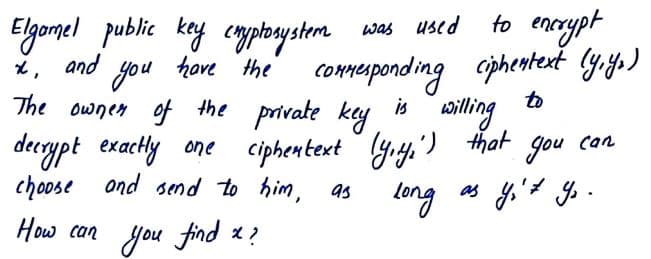 Elgamel public key cryptosystem was used to encrypt
x, and you have the corresponding ciphertext (y₁y₂)
The owner of the private key is willing to
decrypt exactly one ciphertext (y₁y₂') that you can
choose and send to him, as long as y₂' ≠ y₂.
How can you find x?